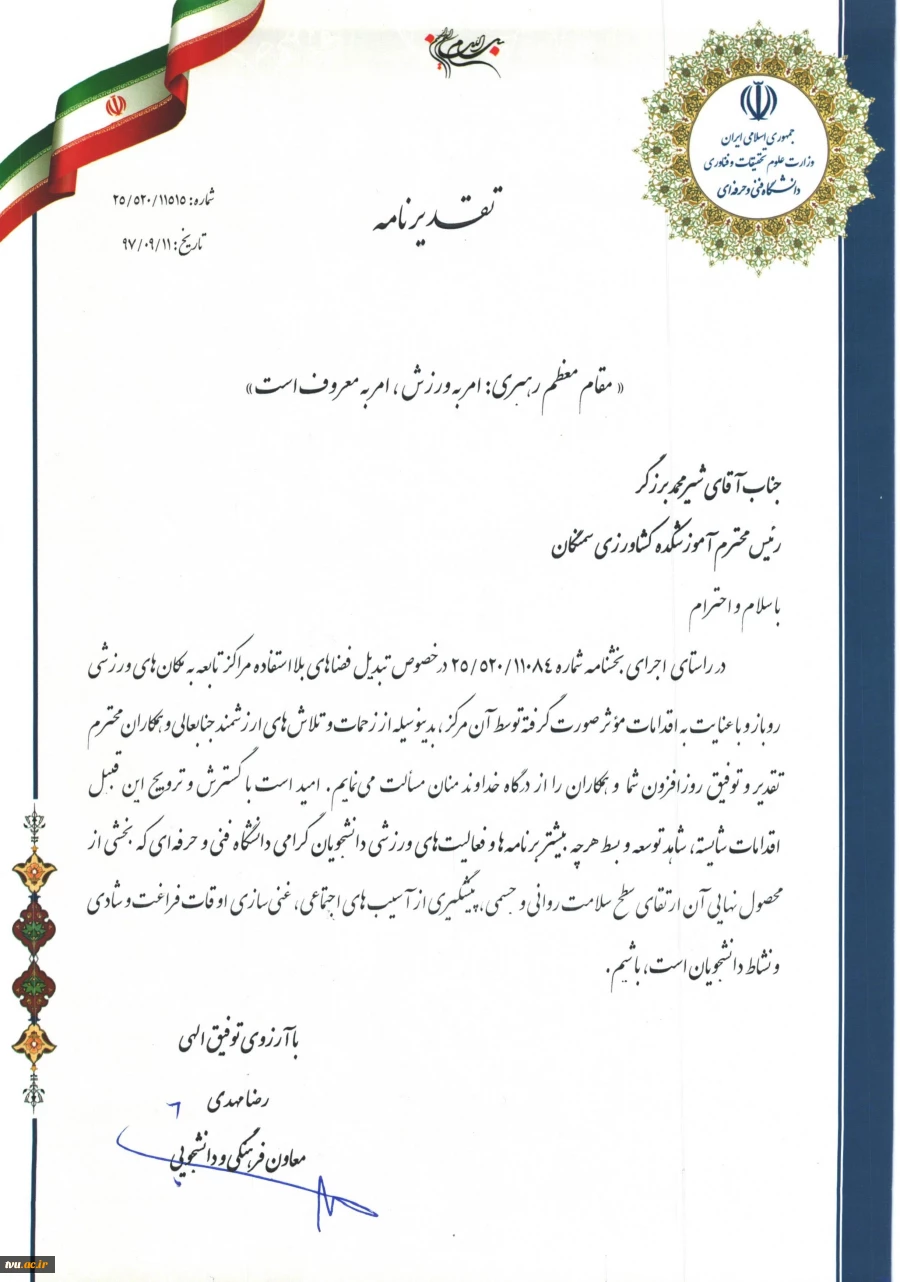 بسم الله الرحمن الرحیم
جمهوری اسلامی ایران
وزارت علوم تحقیقات و فناوری
دانشگاه فنی و حرفه‌ای
شماره: ۲۵/۵۲۰/۱۱۵۱۵
تاریخ: ۹۷/۰۹/۱۱
تقدیرنامه
« مقام معظم رهبری: امر به ورزش ، امر به معروف است»
جناب آقای شیرمحمد برزگر
رئیس محترم آموزشکده کشاورزی سمنگان
با سلام و احترام
در راستای اجرای بخشنامه شماره ۲۵/۵۲۰/۱۱۰۸٤ درخصوص تبدیل فضاهای بلااستفاده مراکز تابعه به مکان‌های ورزشی
روباز و با عنایت به اقدامات مؤثر صورت گرفته توسط آن مرکز، بدینوسیله از زحمات و تلاش‌های ارزشمند جنابعالی و همکاران محترم
تقدیر و توفیق روزافزون شما و همکاران را از درگاه خداوند منان مسألت می‌نمایم. امید است با گسترش و ترویج این قبیل
اقدامات شایسته، شاهد توسعه و بسط هرچه بیشتر برنامه‌ها و فعالیت‌های ورزشی دانشجویان گرامی دانشگاه فنی و حرفه‌ای که بخشی از
محصول نهایی آن ارتقای سطح سلامت روانی و جسمی، پیشگیری از آسیب‌های اجتماعی، غنی‌سازی اوقات فراغت و شادی
و نشاط دانشجویان است، باشیم.
با آرزوی توفیق الهی
رضا مهدی
معاون فرهنگی و دانشجویی
tvu.ac.ir